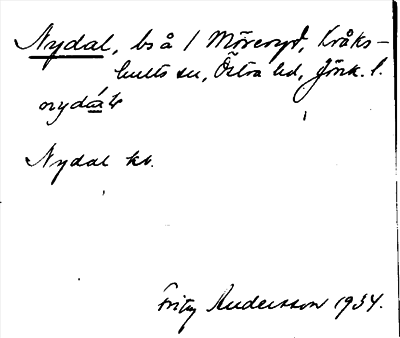 Nydal, bs å 1 Möreryd, Kråks-
hults sn, Östra hd, Jönk. l.
Nydal kb.
Fritz Andersson 1934.